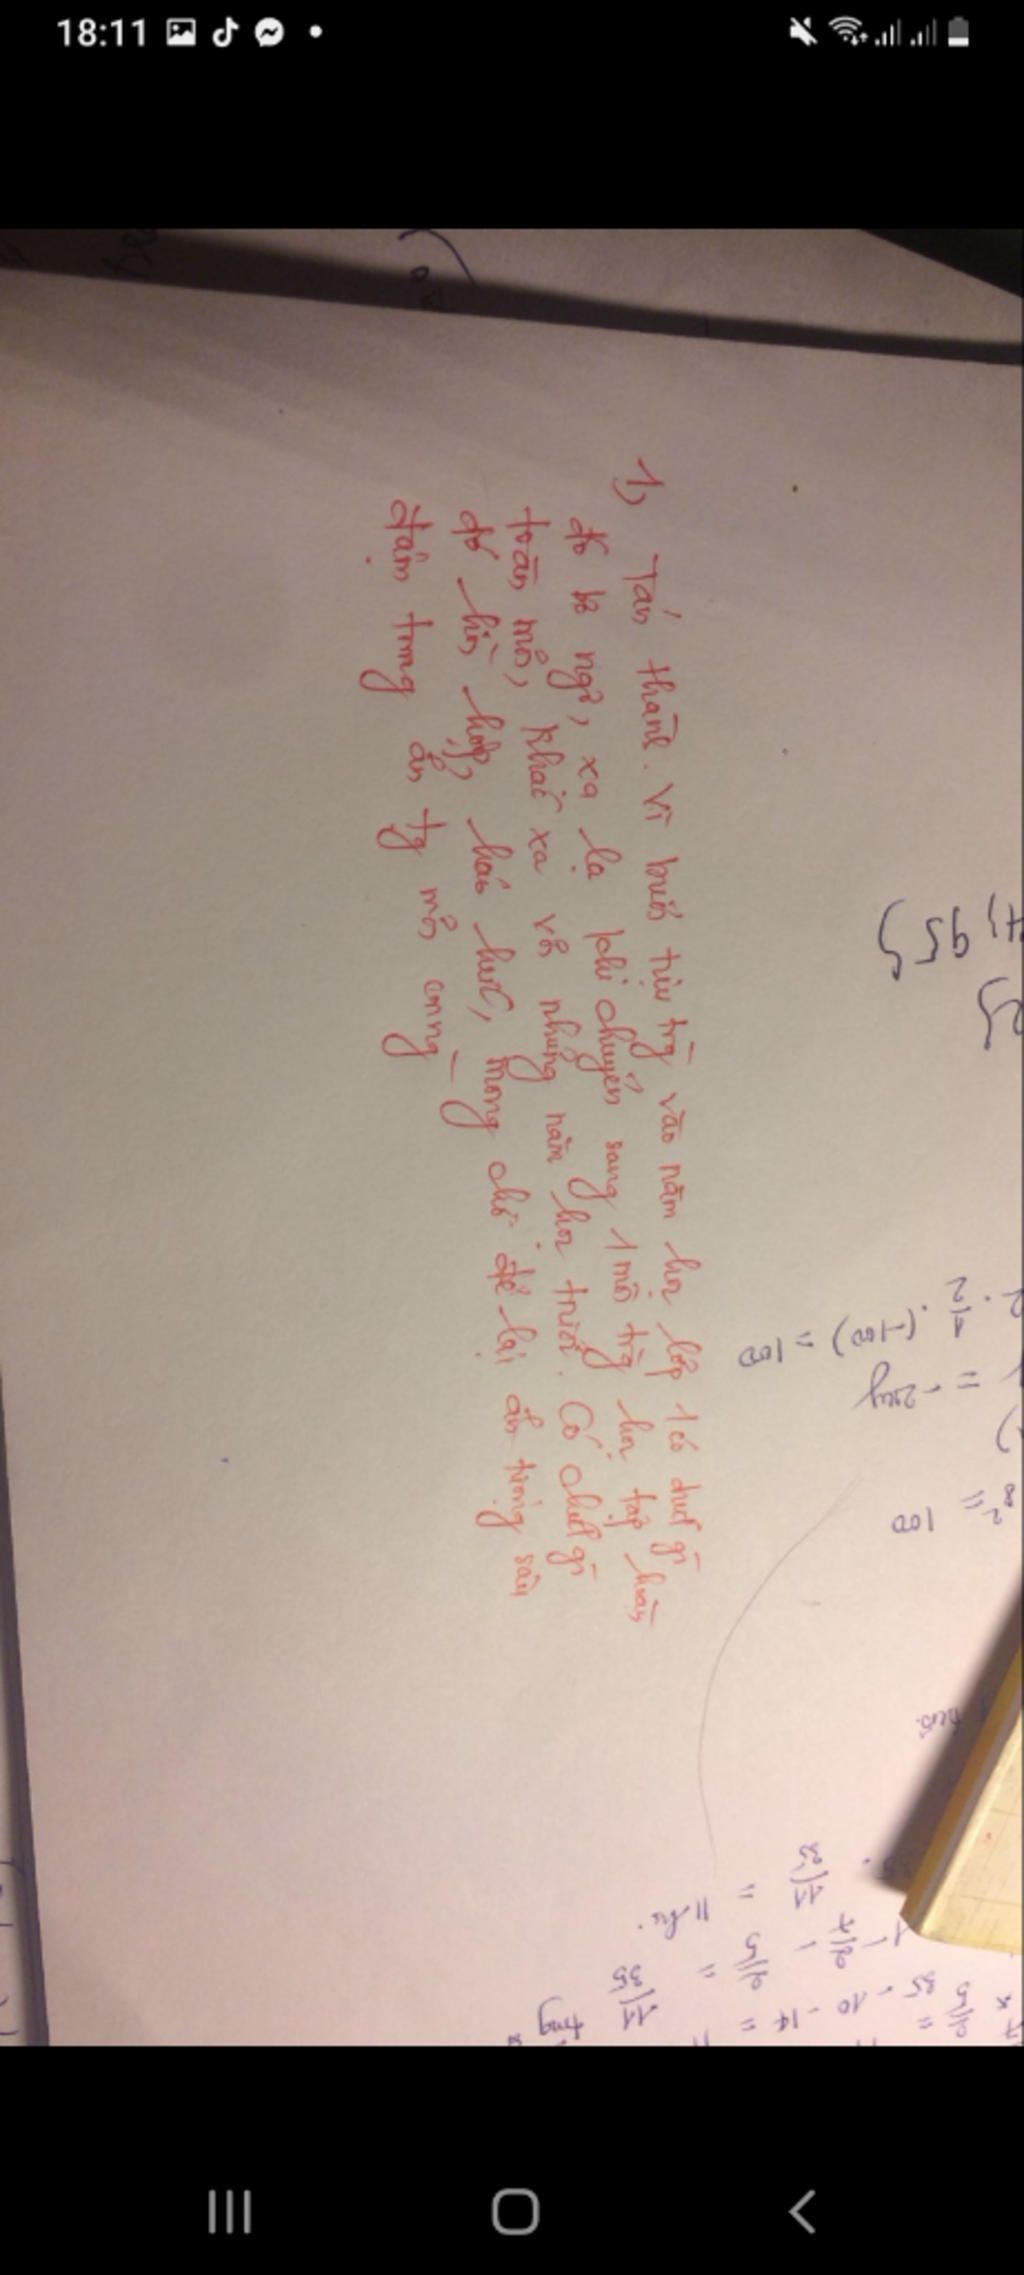 18:11
1, Tán thành. Vì buổi tựu trg vào năm học lớp 1 có chút gì
đó bỡ ngỡ, xa lạ khi chuyển sang 1 môi trg học tập hoàn
toàn mới, khác xa với những năm học trước. Có chút gì
đó hồi hộp, háo hức, mong chờ để lại ấn tượng sâu
đậm trong ấn tg mỗi
4,95)
2. 1/2 . (-100) = 100
= -2xy
= 100
1 - 2/7 - 2/5 = 11/35
35 - 10 - 14 =